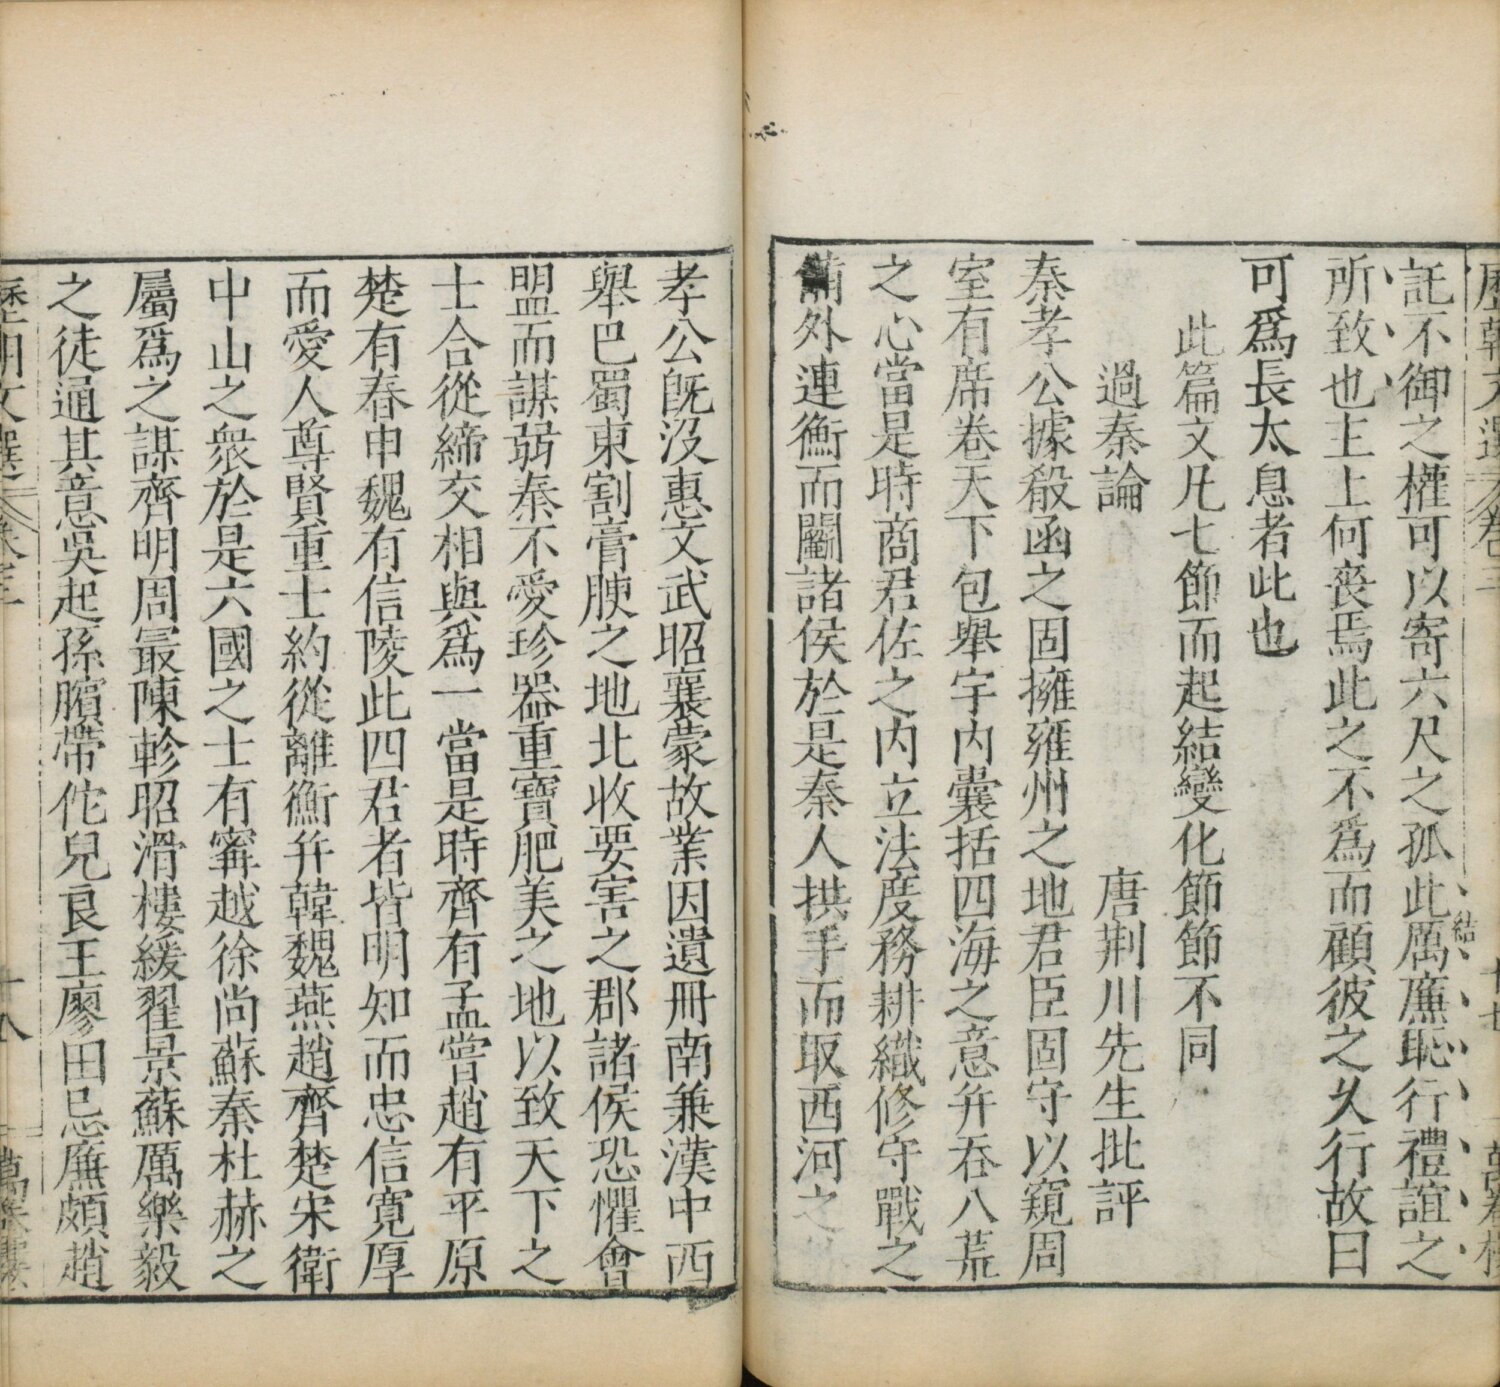 託不御之權可以寄六尺之孤此厲廉恥行禮誼之
結
所致也主上何喪焉此之不爲而顧彼之久行故曰
可爲長太息者此也
此篇文凡七節而起結變化節節不同
過秦論 唐荆川先生批評
秦孝公據殽函之固擁雍州之地君臣固守以窺周
室有席卷天下包舉宇內囊括四海之意并吞八荒
之心當是時商君佐之內立法度務耕織修守戰之
備外連衡而鬭諸侯於是秦人拱手而取西河之
孝公旣沒惠文武昭襄蒙故業因遺冊南兼漢中西
舉巴蜀東割膏腴之地北收要害之郡諸侯恐懼會
盟而謀弱秦不愛珍器重寶肥美之地以致天下之
士合從締交相與爲一當是時齊有孟嘗趙有平原
楚有春申魏有信陵此四君者皆明知而忠信寬厚
而愛人尊賢重士約從離衡并韓魏燕趙齊楚宋衛
中山之衆於是六國之士有甯越徐尚蘇秦杜赫之
屬爲之謀齊明周最陳軫昭滑樓緩翟景蘇厲樂毅
之徒通其意吳起孫臏帶佗兒良王廖田忌廉頗趙